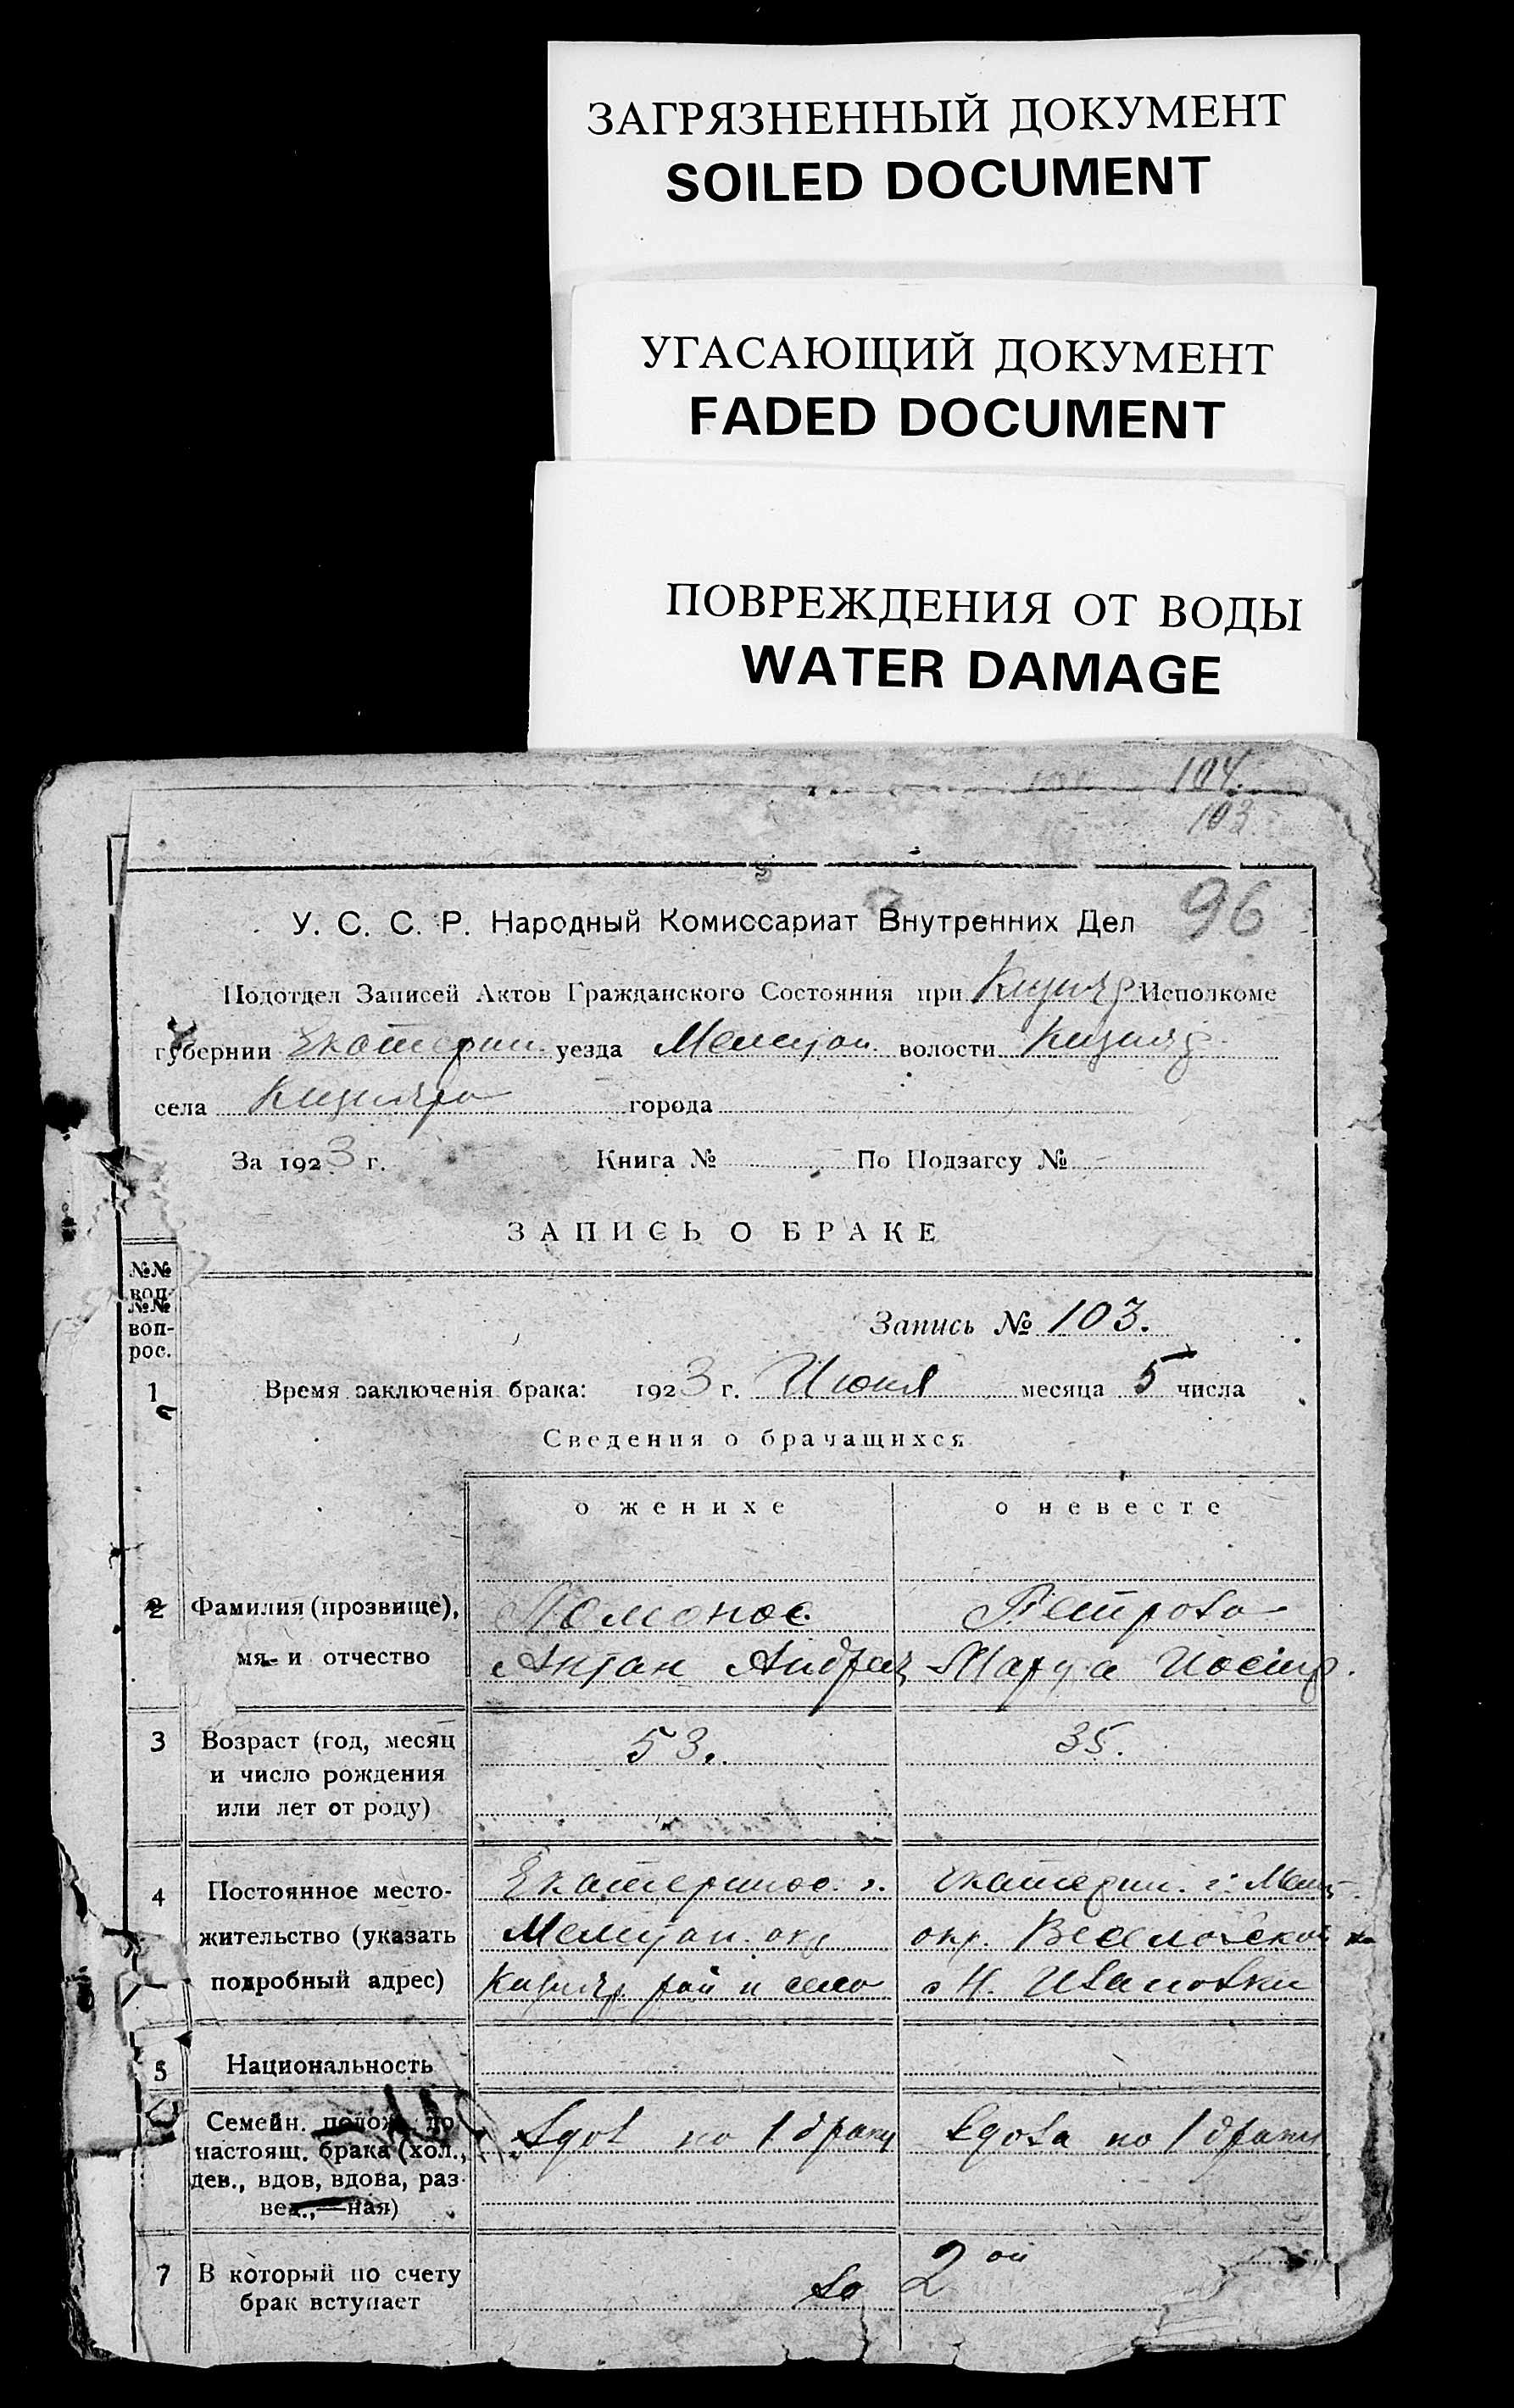 ЗАГРЯЗНЕННЫЙ ДОКУМЕНТ
SOILED DOCUMENT
УГАСАЮЩИЙ ДОКУМЕНТ
FADED DOCUMENT
ПОВРЕЖДЕНИЯ ОТ ВОДЫ
WATER DAMAGE
104.
103
96
У. С. С. Р. Народный Комиссариат Внутренних Дел
Подотдел Записей Актов Гражданского Состояния при Кизияр Исполкоме
губернии Екатерин. уезда Мелитоп. волости Кизияр.
села Кизияра города
За 1923 г. Книга № По Подзагсу №
ЗАПИСЬ О БРАКЕ
№№
воп-
№№
воп-
рос.
Запись № 103.
1 Время заключенія брака: 1923 г. Июня месяца 5 числа
Сведения о брачащихся
о женихе о невесте
2 Фамилия (прозвище), Петрова
мя и отчество Андреев Иосиф.
3 Возраст (год, месяц 53. 35.
и число рождения
или лет от роду)
4 Постоянное место- Екатеринос. г. Екатерин. г. Мелит.
жительство (указать Мелитоп. окр. окр. Веселовской
подробный адрес) Кизияр рай и село с Н. Ивановки
5 Национальность
Семейн. полож. до вдов по 1 браку вдова по 1 браку
настоящ. брака (хол.,
дев., вдов, вдова, раз-
вед.,—ная)
7 В который по счету во 2 ой
брак вступает